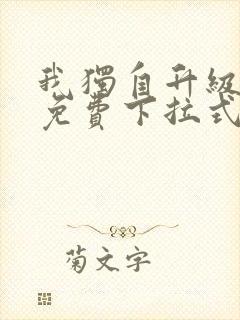 我獨自升級
免費下拉式
菊文字